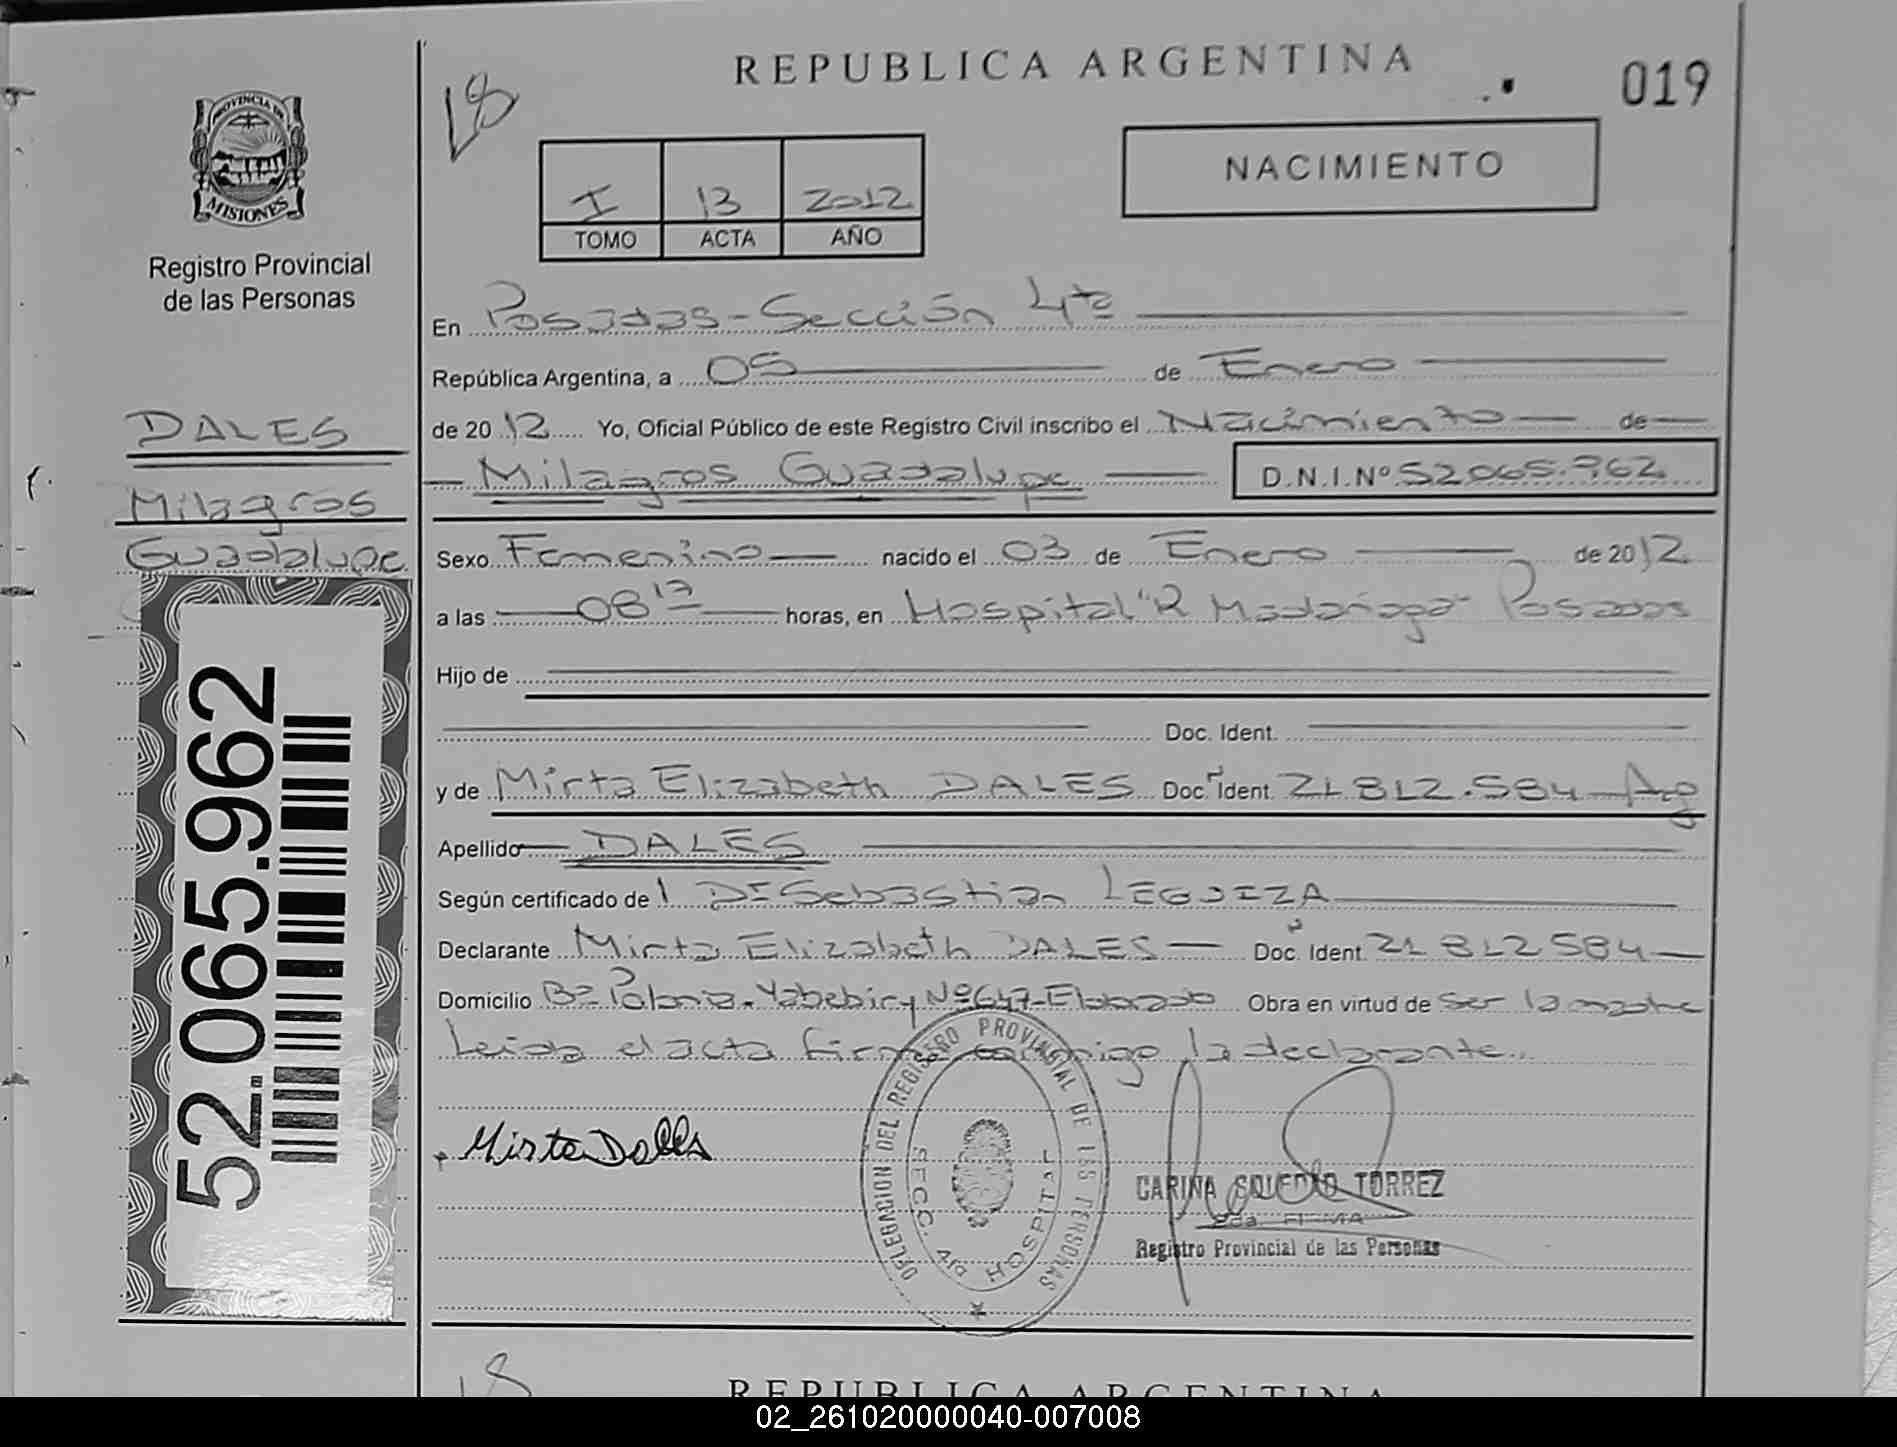 REPUBLICA ARGENTINA
019
18
PROVINCIA DE
MISIONES
Registro Provincial
de las Personas
I 13 2012
TOMO ACTA AÑO
NACIMIENTO
En Posadas - Sección 4ta
República Argentina, a 05 de Enero
de 2012 Yo, Oficial Público de este Registro Civil inscribo el Nacimiento de
Milagros Guadalupe D.N.I.Nº 52.065.962
DALES
Milagros
Guadalupe
52.065.962
Sexo Femenino nacido el 03 de Enero de 2012
a las 08 17 horas, en Hospital "R Madariaga" Posadas
Hijo de
Doc. Ident.
y de Mirta Elizabeth DALES Doc. Ident. 21.812.584 Arg
Apellido DALES
Según certificado de Sebastian LEGUIZA
Declarante Mirta Elizabeth DALES Doc. Ident. 21 812 584
Domicilio Bº Polonia. Yabebiry Nº 647 - Eldorado Obra en virtud de ser la madre
Leida el acta firma conmigo la declarante.
Mirta Dales
DELEGACION DEL REGISTRO PROVINCIAL DE LAS PERSONAS
SECC. 4ta HOSPITAL
CARINA SOLEDAD TORREZ
2da. FIRMA
Registro Provincial de las Personas
18
REPUBLICA ARGENTINA
02_261020000040-007008